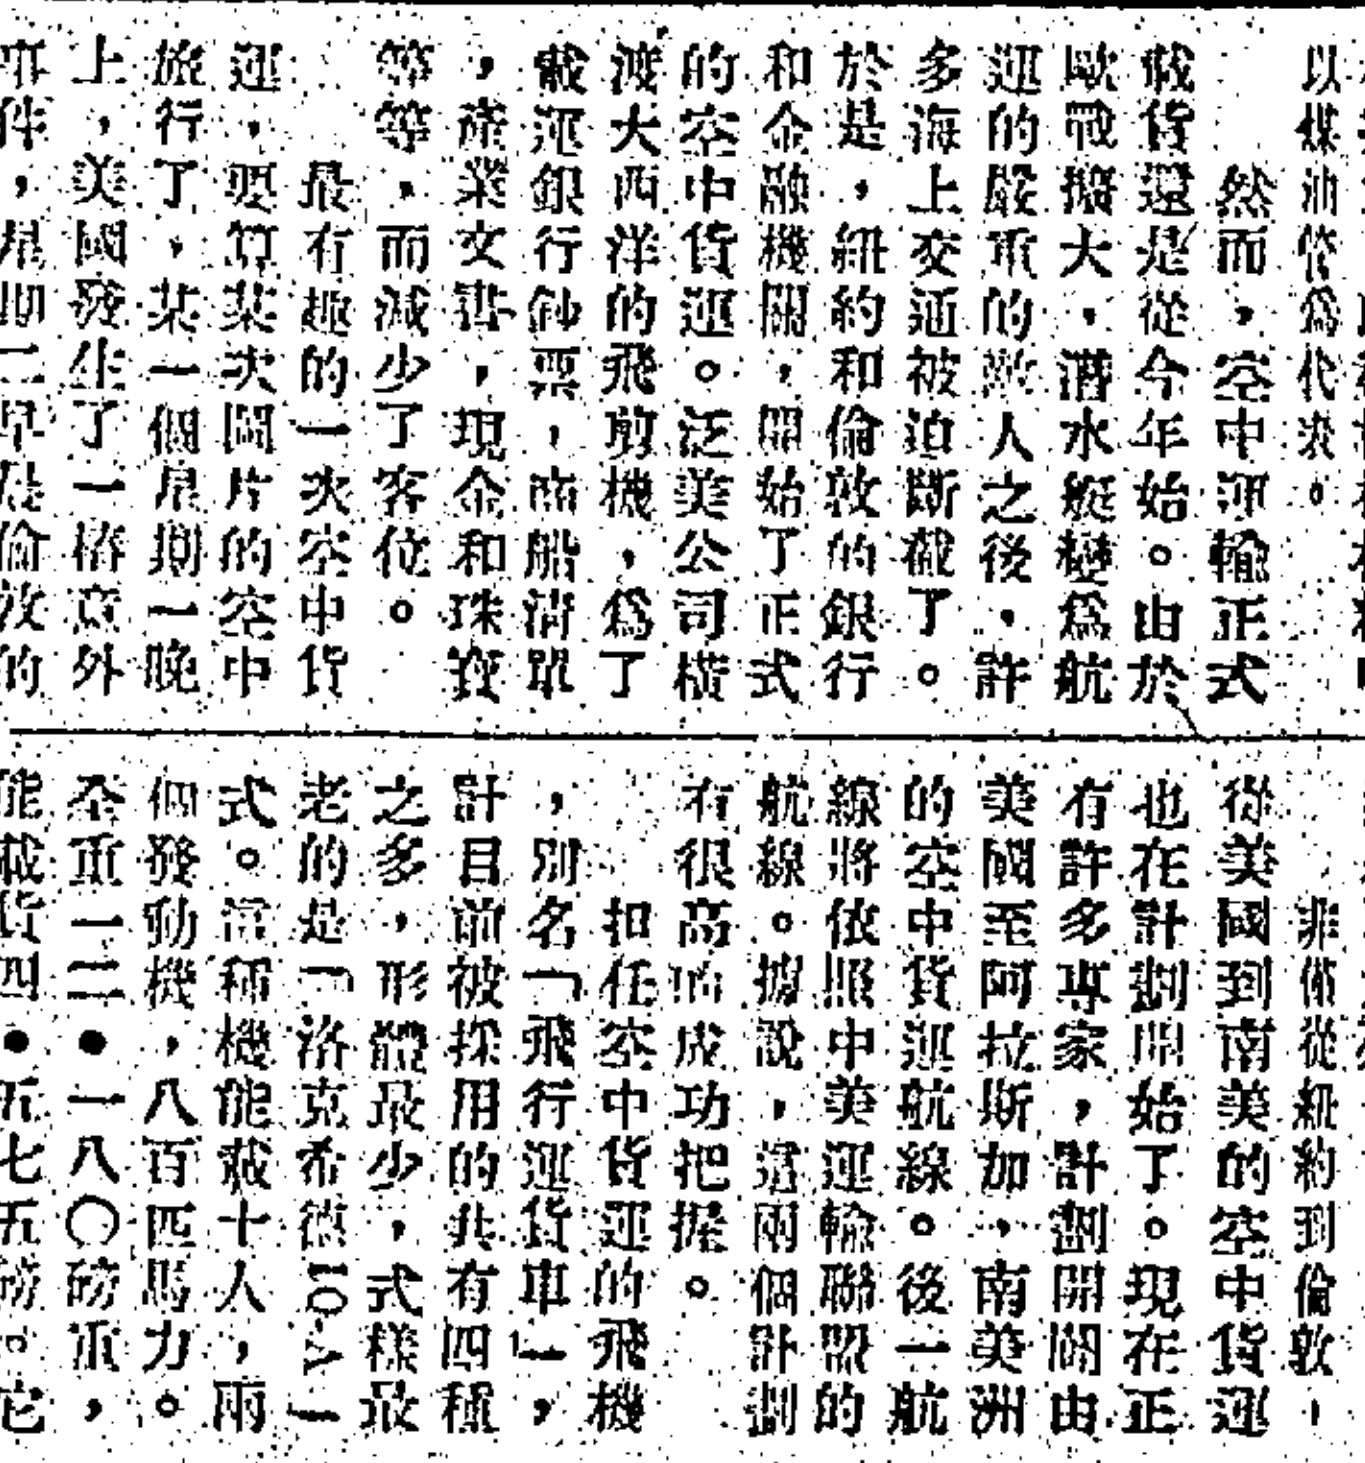 以煤油管爲代表。
然而，空中運輸正式
載貨還是從今年始。由於
歐戰擴大，潛水艇變爲航
運的嚴重的敵人之後，許
多海上交通被迫斷截了。
於是，紐約和倫敦的銀行
和金融機關，開始了正式
的空中貨運。泛美公司橫
渡大西洋的飛剪機，爲了
載運銀行鈔票，商船淸單
，產業文書，現金和珠寶
等等，而減少了客位。
最有趣的一次空中貨
運，要算某次圖片的空中
旅行了，某一個星期一晚
上，美國發生了一樁意外
事件，星期二早晨倫敦的
非僅從紐約到倫敦，
從美國到南美的空中貨運
也在計劃開始了。現在正
有許多專家，計劃開闢由
美國至阿拉斯加，南美洲
的空中貨運航線。後一航
線將依照中美運輸聯盟的
航線。據說，這兩個計劃
有很高的成功把握。
担任空中貨運的飛機
，別名「飛行運貨車」，
計目前被採用的共有四種
之多，形體最少，式樣最
老的是「洛克希德10-A」
式。這種機能載十人，兩
個發動機，八百匹馬力。
全重一二●一八〇磅重，
能載貨四●五七五磅。它